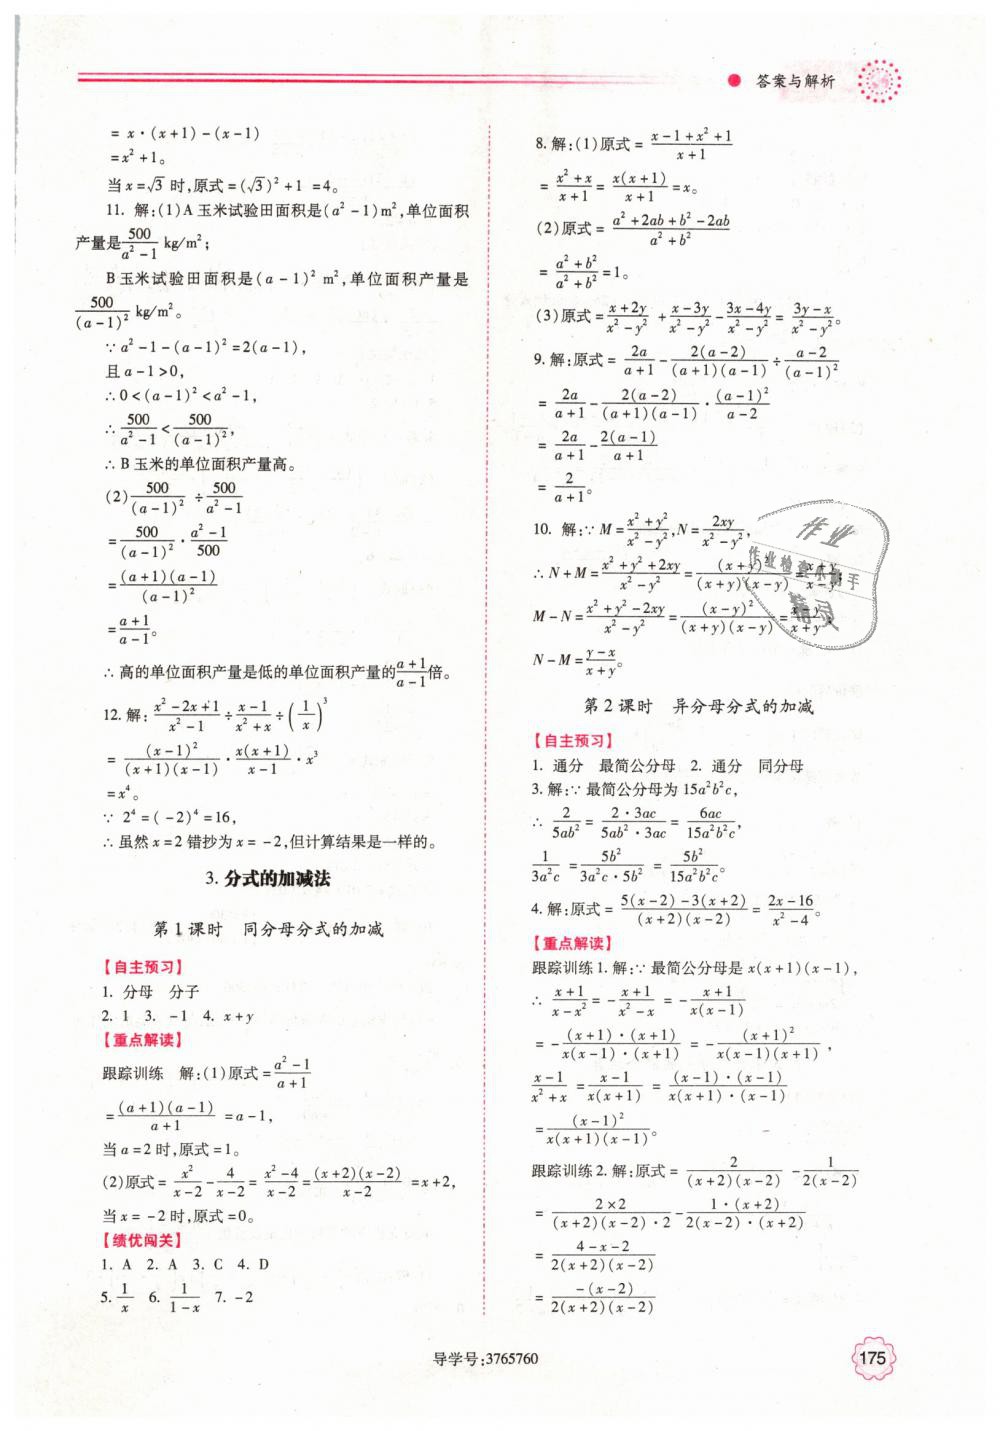 答案与解析
= x·(x+1)-(x-1)
=x²+1。
当x=√3 时,原式=(√3)²+1 =4。
11. 解:(1)A 玉米试验田面积是(a²-1)m²,单位面积
产量是500/(a²-1) kg/m²;
B 玉米试验田面积是(a-1)² m²,单位面积产量是
500/(a-1)² kg/m²。
∵a²-1-(a-1)²=2(a-1),
且a-1>0,
∴0<(a-1)²<a²-1,
∴500/(a²-1)<500/(a-1)²,
∴B 玉米的单位面积产量高。
(2)500/(a-1)²÷500/(a²-1)
=500/(a-1)²·(a²-1)/500
=(a+1)(a-1)/(a-1)²
=(a+1)/(a-1)。
∴高的单位面积产量是低的单位面积产量的(a+1)/(a-1)倍。
12. 解:(x²-2x+1)/(x²-1)÷(x-1)/(x²+x)÷(1/x)³
=(x-1)²/((x+1)(x-1))·x(x+1)/(x-1)·x³
=x⁴。
∵2⁴=(-2)⁴=16,
∴虽然x=2错抄为x=-2,但计算结果是一样的。
3. 分式的加减法
第1课时 同分母分式的加减
【自主预习】
1. 分母 分子
2. 1 3. -1 4. x+y
【重点解读】
跟踪训练 解:(1)原式=(a²-1)/(a+1)
=(a+1)(a-1)/(a+1)=a-1,
当a=2时,原式=1。
(2)原式=x²/(x-2)-4/(x-2)=(x²-4)/(x-2)=(x+2)(x-2)/(x-2)=x+2,
当x=-2时,原式=0。
【绩优闯关】
1. A 2. A 3. C 4. D
5. 1/x 6. 1/(1-x) 7. -2
8. 解:(1)原式=(x-1+x²+1)/(x+1)
=(x²+x)/(x+1)=x(x+1)/(x+1)=x。
(2)原式=(a²+2ab+b²-2ab)/(a²+b²)
=(a²+b²)/(a²+b²)=1。
(3)原式=(x+2y)/(x²-y²)+(x-3y)/(x²-y²)-(3x-4y)/(x²-y²)=(3y-x)/(x²-y²)。
9. 解:原式=2a/(a+1)-2(a-2)/((a+1)(a-1))÷(a-2)/(a-1)²
=2a/(a+1)-2(a-2)/((a+1)(a-1))·(a-1)²/(a-2)
=2a/(a+1)-2(a-1)/(a+1)
=2/(a+1)。
10. 解:∵M=(x²+y²)/(x²-y²),N=2xy/(x²-y²),
∴N+M=(x²+y²+2xy)/(x²-y²)=(x+y)²/((x+y)(x-y))=(x+y)/(x-y),
M-N=(x²+y²-2xy)/(x²-y²)=(x-y)²/((x+y)(x-y))=(x-y)/(x+y),
N-M=(y-x)/(x+y)。
作业
作业检查小帮手
精灵
第2课时 异分母分式的加减
【自主预习】
1. 通分 最简公分母 2. 通分 同分母
3. 解:∵最简公分母为15a²b²c,
∴2/(5ab²)=(2·3ac)/(5ab²·3ac)=6ac/(15a²b²c),
1/(3a²c)=5b²/(3a²c·5b²)=5b²/(15a²b²c)。
4. 解:原式=(5(x-2)-3(x+2))/((x+2)(x-2))=(2x-16)/(x²-4)。
【重点解读】
跟踪训练1. 解:∵最简公分母是x(x+1)(x-1),
∴(x+1)/(x-x²)=-(x+1)/(x²-x)=-(x+1)/(x(x-1))
=-((x+1)·(x+1))/(x(x-1)·(x+1))=-(x+1)²/(x(x-1)(x+1)),
(x-1)/(x²+x)=(x-1)/(x(x+1))=((x-1)·(x-1))/(x(x+1)·(x-1))
=(x-1)²/(x(x+1)(x-1))。
跟踪训练2. 解:原式=2/((x+2)(x-2))-1/(2(x-2))
=(2×2)/((x+2)(x-2)·2)-(1·(x+2))/(2(x-2)·(x+2))
=(4-x-2)/(2(x+2)(x-2))
=-(x-2)/(2(x+2)(x-2))
导学号:3765760
175